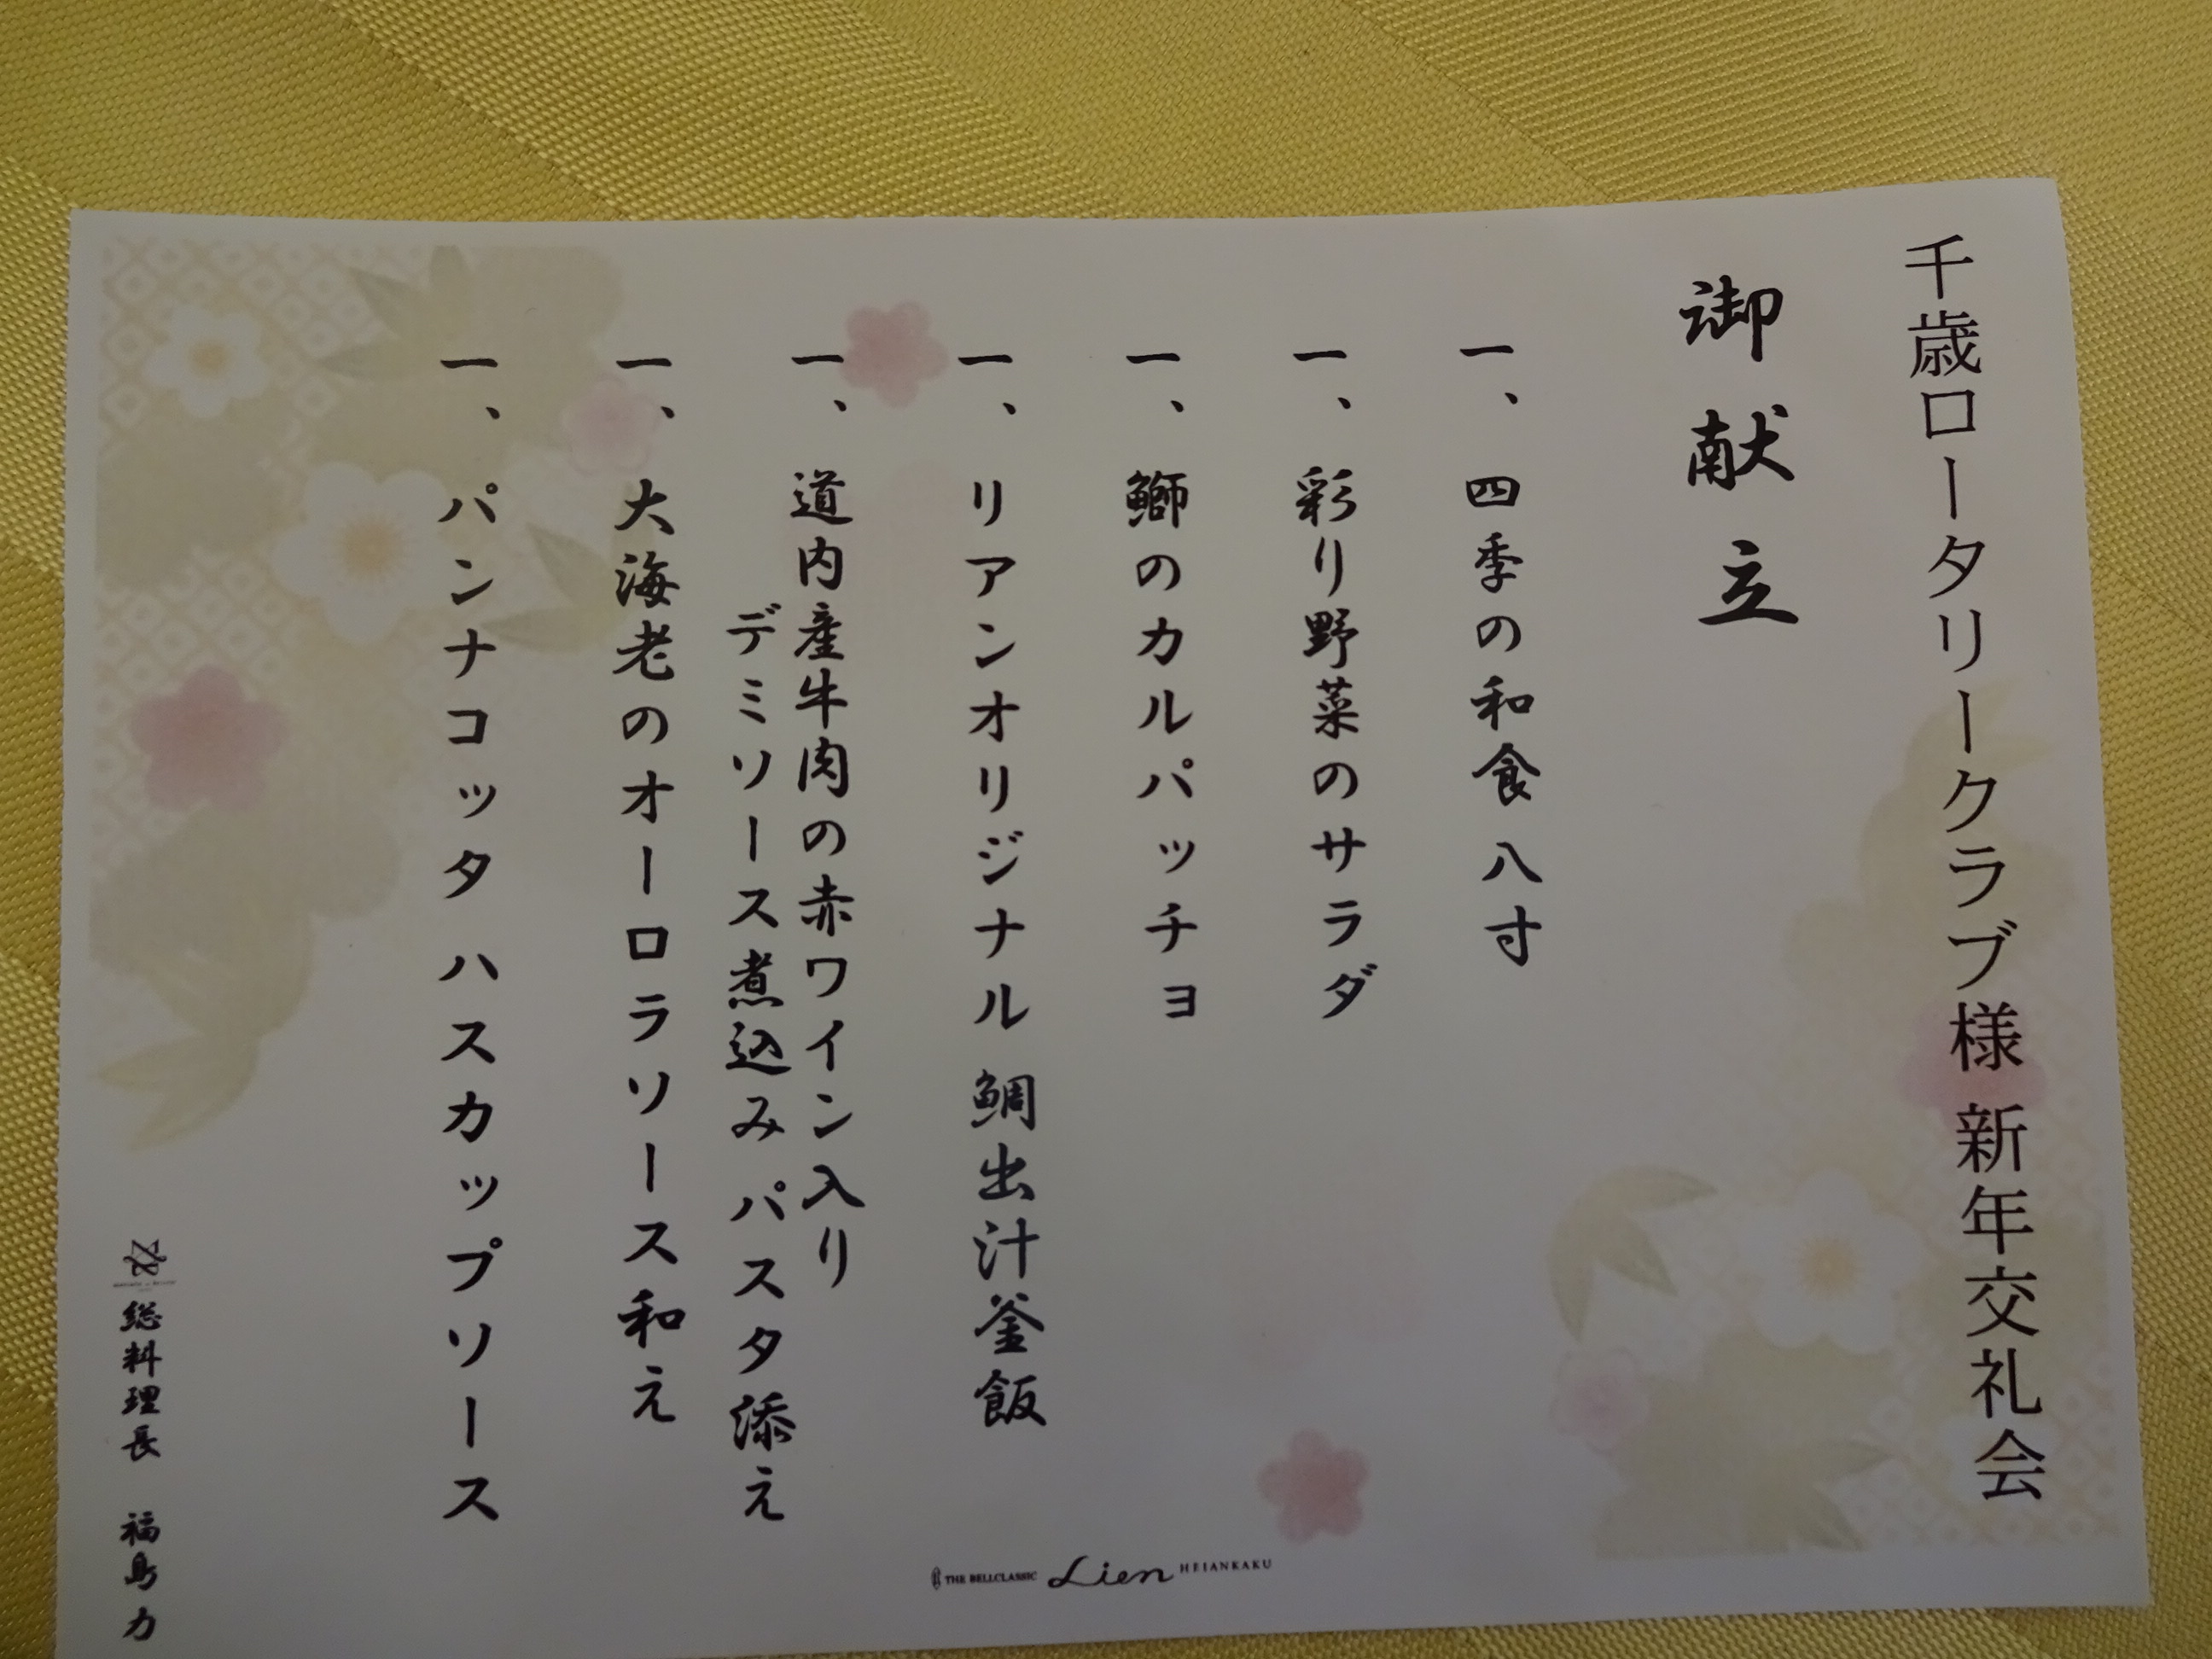 千歳ロータリークラブ様 新年交礼会
御献立
一、四季の和食 八寸
一、彩り野菜のサラダ
一、鰤のカルパッチョ
一、リアンオリジナル 鯛出汁釜飯
一、道内産牛肉の赤ワイン入り
デミソース煮込み パスタ添え
一、大海老のオーロラソース和え
一、パンナコッタ ハスカップソース
総料理長 福島 力
THE BELLCLASSIC Lien HEIANKAKU